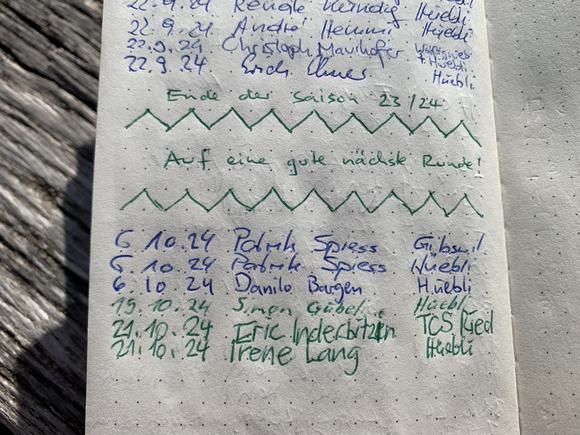 22.9.24 Renate Hüebli
22.9.24 André Hemmi Hüebli
22.9.24 Christoph Mavihofer Hüebli
22.9.24 Hüebli
Ende der Saison 23/24
Auf eine gute nächste Runde!
6.10.24 Patrik Spiess Gibswil
6.10.24 Patrik Spiess Hüebli
6.10.24 Danilo Bargen Hüebli
19.10.24 Simon Gübeli Hüebli
21.10.24 Eric Inderbitzin TCS Ried
21.10.24 Irene Lang Hüebli